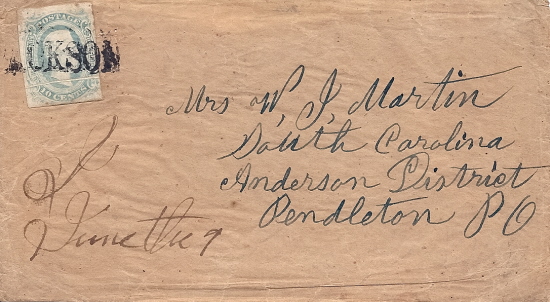 POSTAGE
UKSON
10 CENTS
Mrs W. J. Martin
South Carolina
Anderson District
Pendleton PO
June the 9